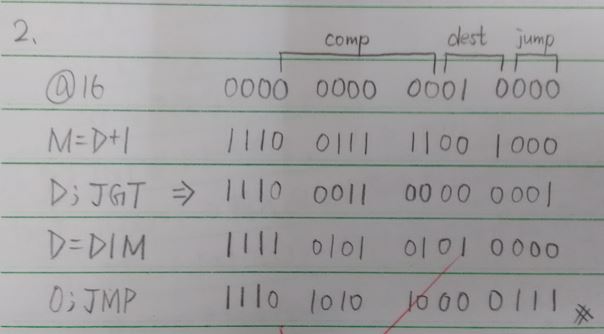 2. comp dest jump
@16 0000 0000 0001 0000
M=D+1 1110 0111 1100 1000
D; JGT ⇒ 1110 0011 0000 0001
D=D|M 1111 0101 0101 0000
0; JMP 1110 1010 1000 0111 ※